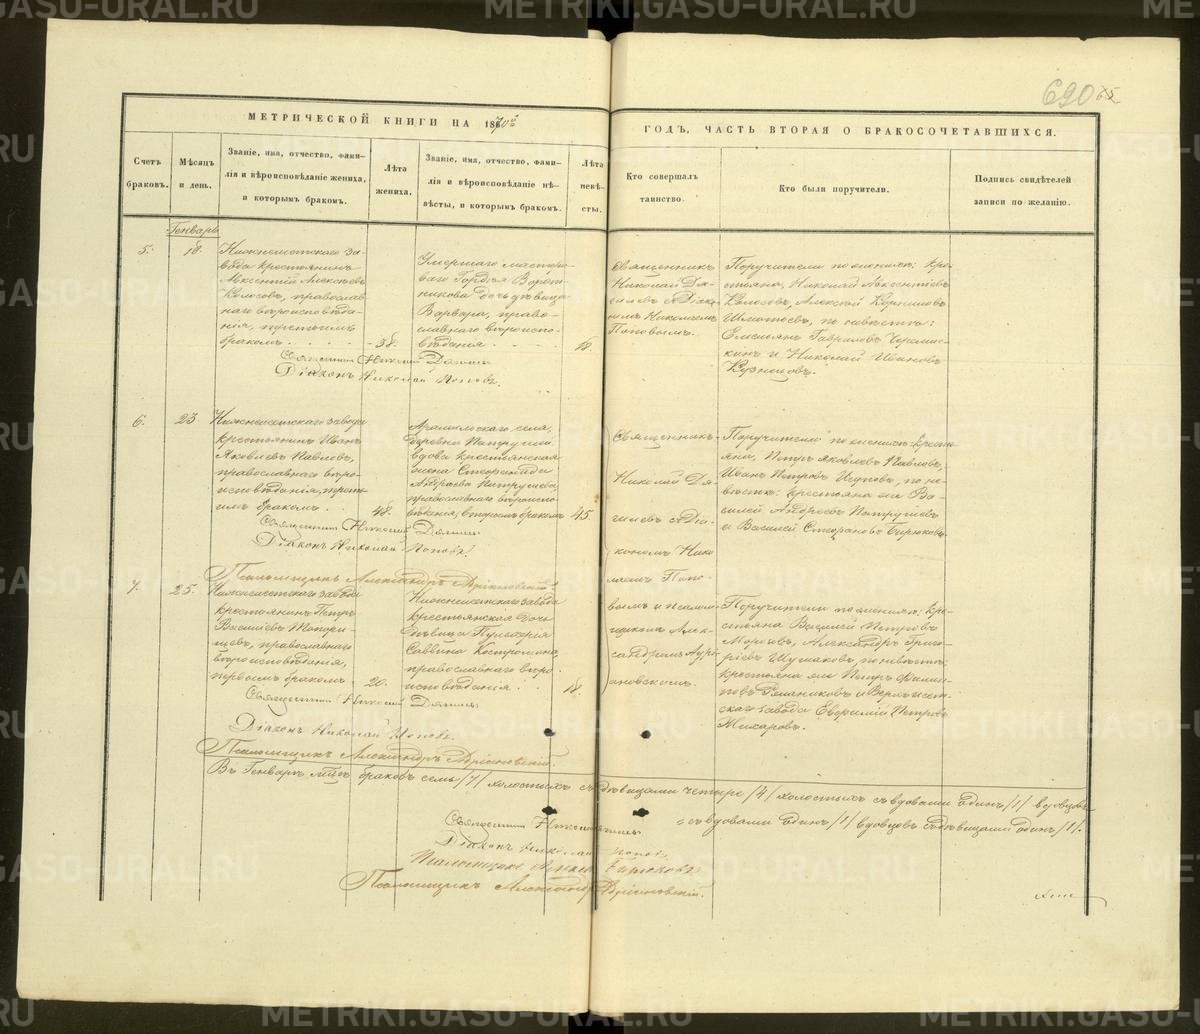 690
МЕТРИЧЕСКОЙ КНИГИ НА 1870й
ГОДЪ, ЧАСТЬ ВТОРАЯ О БРАКОСОЧЕТАВШИХСЯ.
Счетъ браковъ.
Мѣсяцъ и день.
Званіе, имя, отчество, фами-
лія и вѣроисповѣданіе жениха,
и которымъ бракомъ.
Лѣта
жениха.
Званіе, имя, отчество, фами-
лія и вѣроисповѣданіе не-
вѣсты, и которымъ бракомъ.
Лѣта
невѣ-
сты.
Кто совершалъ
таинство.
Кто были поручители.
Подпись свидѣтелей
записи по желанію.
Генварь
5.
18.
Нижнеисетскаго за-
вода крестьянинъ
Авксентій Алексѣевъ
Колосовъ, православ-
наго вѣроисповѣда-
нія, третьимъ
бракомъ.
58.
Умершаго мастеро-
ваго Гордѣя Ворот-
никова дочь дѣвица
Варвара, право-
славнаго вѣроиспо-
вѣданія
18.
Священникъ
Николай
съ Діако-
номъ Николаемъ
Поповымъ.
Поручители по женихѣ: кре-
стьяна, Николай Авксентіевъ
Колосовъ, Алексѣй Корниловъ
по невѣстѣ:
Емельянъ Гавриловъ
и Николай Ивановъ
Кузнецовъ.
Священникъ Николай
Діаконъ Николай Поповъ.
6.
23
Нижнеисетскаго завода
крестьянинъ Иванъ
Яковлевъ Павловъ,
православнаго вѣро-
исповѣданія, треть-
имъ бракомъ.
48.
Арамильскаго села,
деревни Патрушей
вдова крестьянская
жена Стефанида
Андреева Патрушева,
православнаго вѣроиспо-
вѣданія, вторымъ бракомъ
45.
Священникъ
Николай
съ Діа-
кономъ Нико-
лаемъ Попо-
вымъ и псалом-
щикомъ Алек-
сандромъ Адрі-
ановскимъ.
Поручители по женихѣ: кресть-
яна, Петръ Яковлевъ Павловъ,
Иванъ Петровъ по не-
вѣстѣ: крестьяна же Ва-
силій Андреевъ Патрушевъ
и Василій Стефановъ Бирюковъ.
Священникъ Николай
Діаконъ Николай Поповъ.
Псаломщикъ Александръ Адріановскій.
7.
25.
Нижнеисетскаго завода
крестьянинъ Петръ
Василіевъ Топори-
щевъ, православнаго
вѣроисповѣданія,
первымъ бракомъ
20.
Нижнеисетскаго завода
крестьянская дочь
дѣвица Пульхерія
Саввина Костромина,
православнаго вѣро-
исповѣданія
18.
Поручители по женихѣ: кре-
стьяна Василій Петровъ
Александръ Григо-
ріевъ по невѣстѣ:
крестьяна же Петръ Филип-
повъ и Верхъисет-
скаго завода Евфимій Петровъ
Священникъ Николай
Діаконъ Николай Поповъ.
Псаломщикъ Александръ Адріановскій.
Въ Генварѣ мцѣ браковъ семь /7/ холостыхъ съ дѣвицами четыре /4/ холостыхъ съ вдовами одинъ /1/ вдовцовъ
съ вдовами одинъ /1/ вдовцовъ съ дѣвицами одинъ /1/.
Священникъ Николай
Діаконъ Николай Поповъ.
Псаломщикъ Бирюковъ
Псаломщикъ Александръ Адріановскій.
METRIKI.GASO-URAL.RU